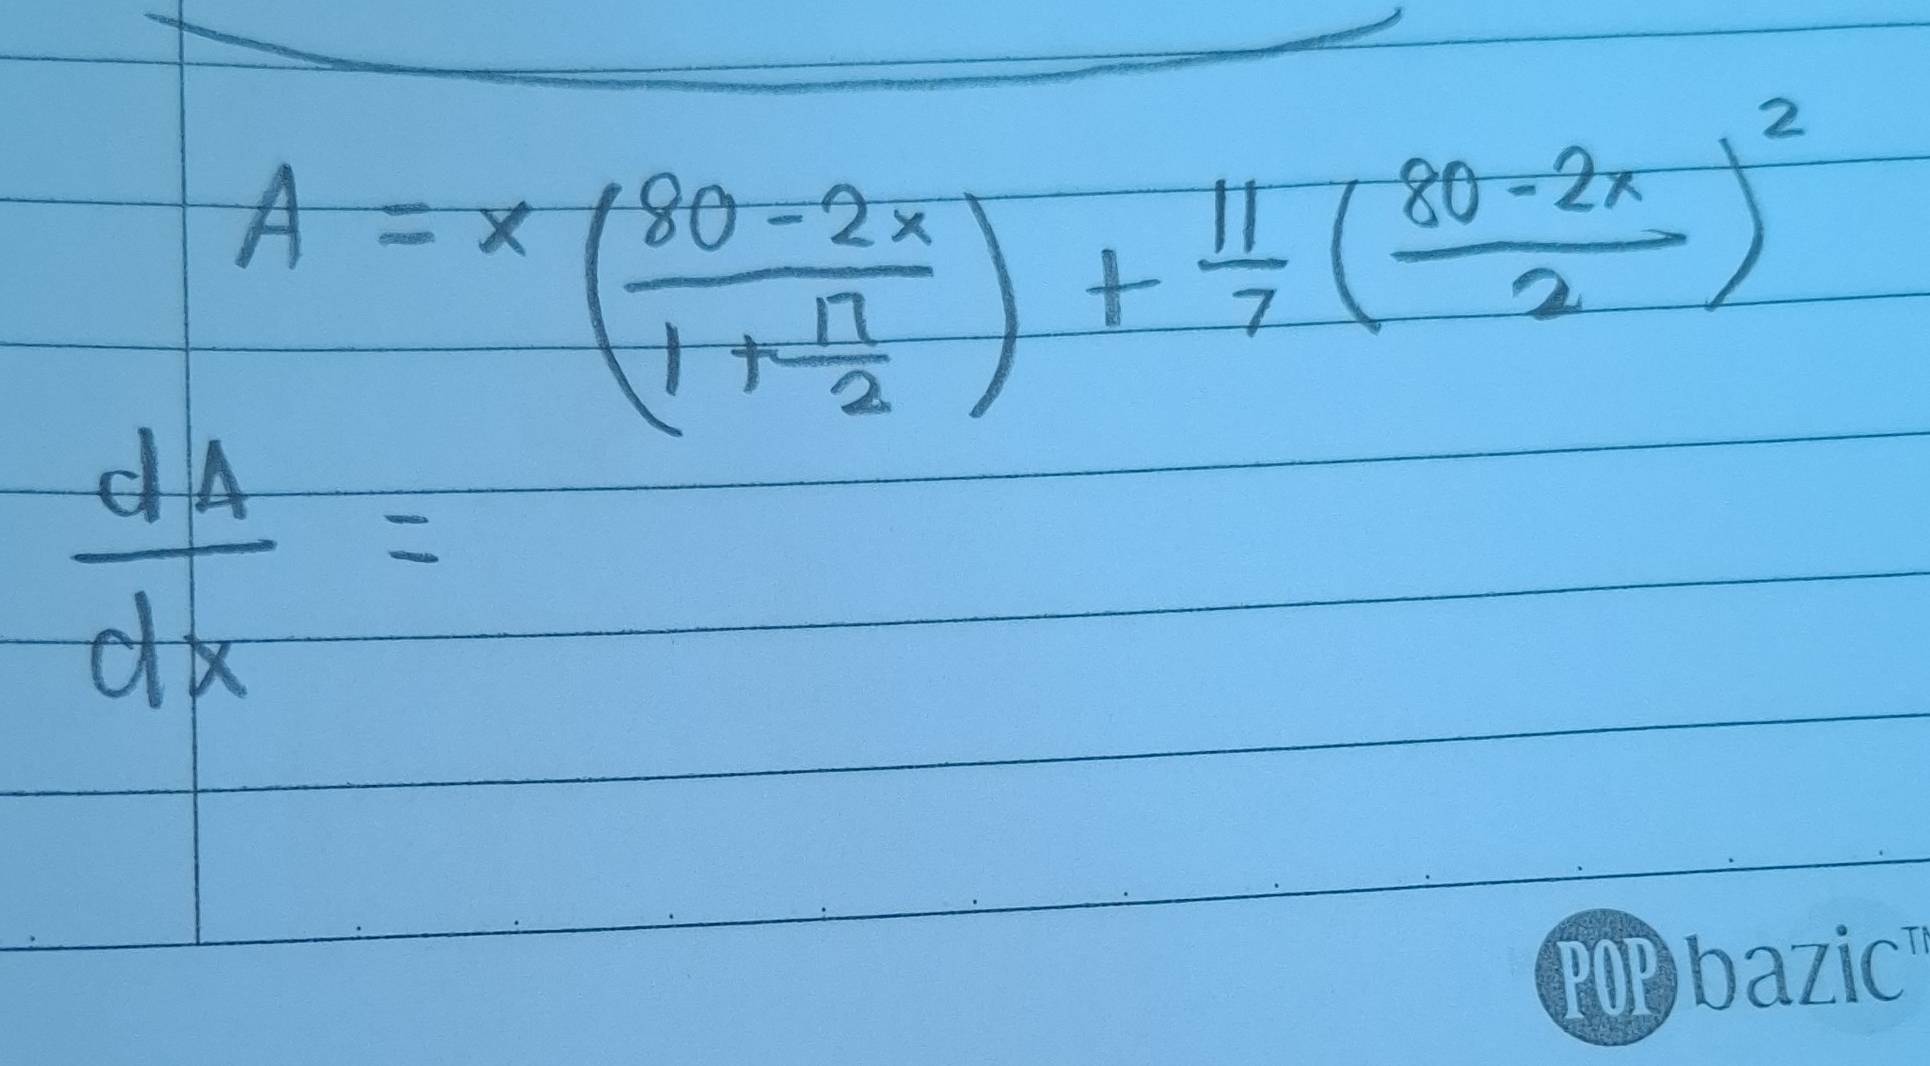 A = x ( (80 - 2x) / (1 + π/2) ) + 11/7 ( (80 - 2x) / 2 )²
dA/dx =
POP bazic™